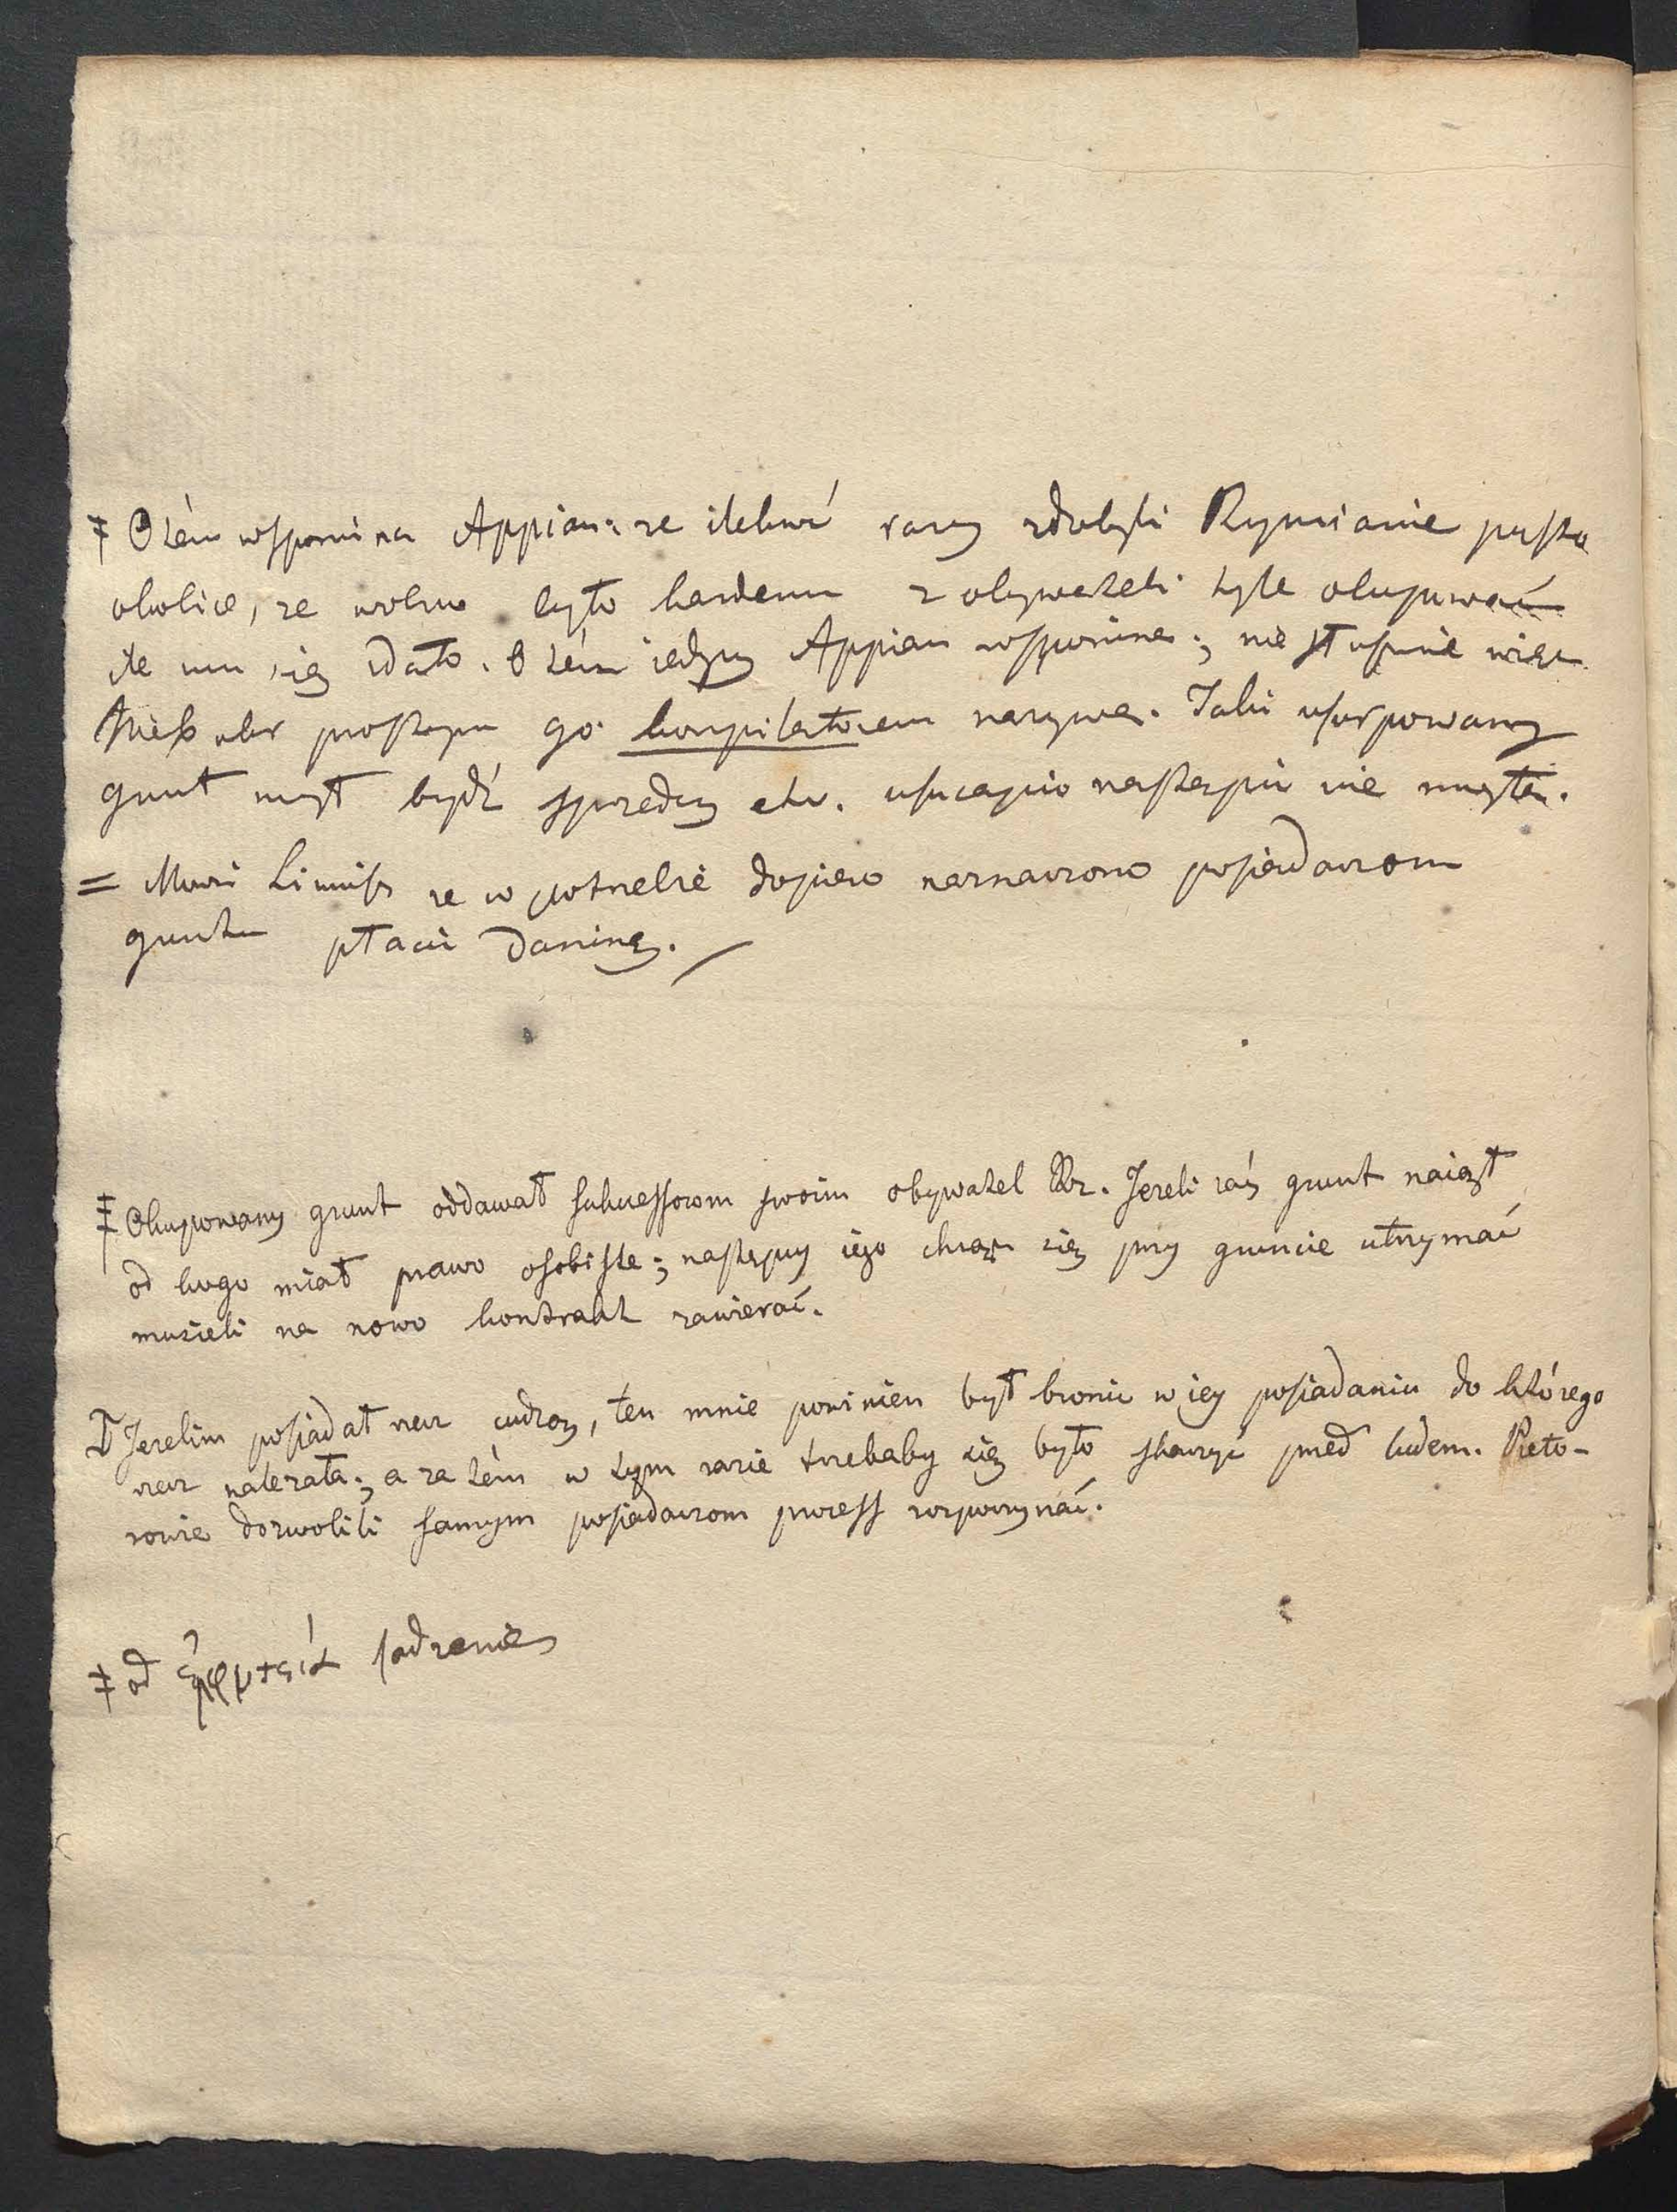 ‡ O tém wspomina Appian: że ilekroć razy zdobyli Rzymianie pustą
okolicę, że wolno było każdemu z obywateli tyle okupować
ile mu się zdało. O tém jedyny Appian wspomina; nie słusznie więc
Niebuhr prostym go kompilatorem nazywa. Taki usurpowany
grunt mógł bydź sprzedany etc. usucapio nastąpić nie mogła.
= Mówi Livius że w potrzebie dopiero naznaczono posiadaczom
gruntu płacić daninę.
‡ Okupowany grunt oddawał sukcessorom swoim obywatel Rz. Jeżeli zaś grunt naiął
od kogo miał prawo osobiste; następcy iego chcąc się przy gruncie utrzymać
musieli na nowo kontrakt zawierać.
Jeżelim posiadał rzecz cudzą, ten mnie powinien był bronić w iey posiadaniu do którego
rzecz należała; a za tém w tym razie trzebaby się było skarżyć przed ludem. Preto-
rowie dozwolili samym posiadaczom process rozpoczynać.
‡ od ἐμφυτεία sadzenie